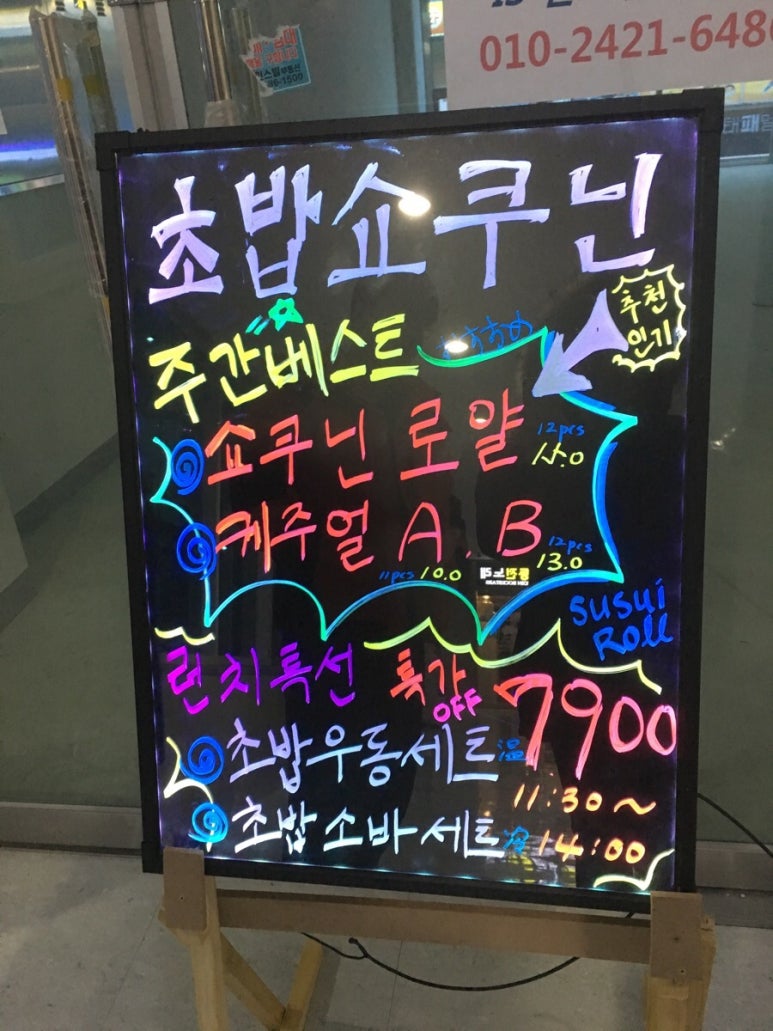 010-2421-648
초밥쇼쿠닌
추천
인기
주간베스트 おすすめ
쇼쿠닌 로얄 12pcs 15.0
케주얼 A, B 12pcs 13.0
11pcs 10.0
SUSUi
Roll
런치특선 특가 7900
OFF
초밥우동세트 温
11:30~
초밥 소바 세트 冷 14:00